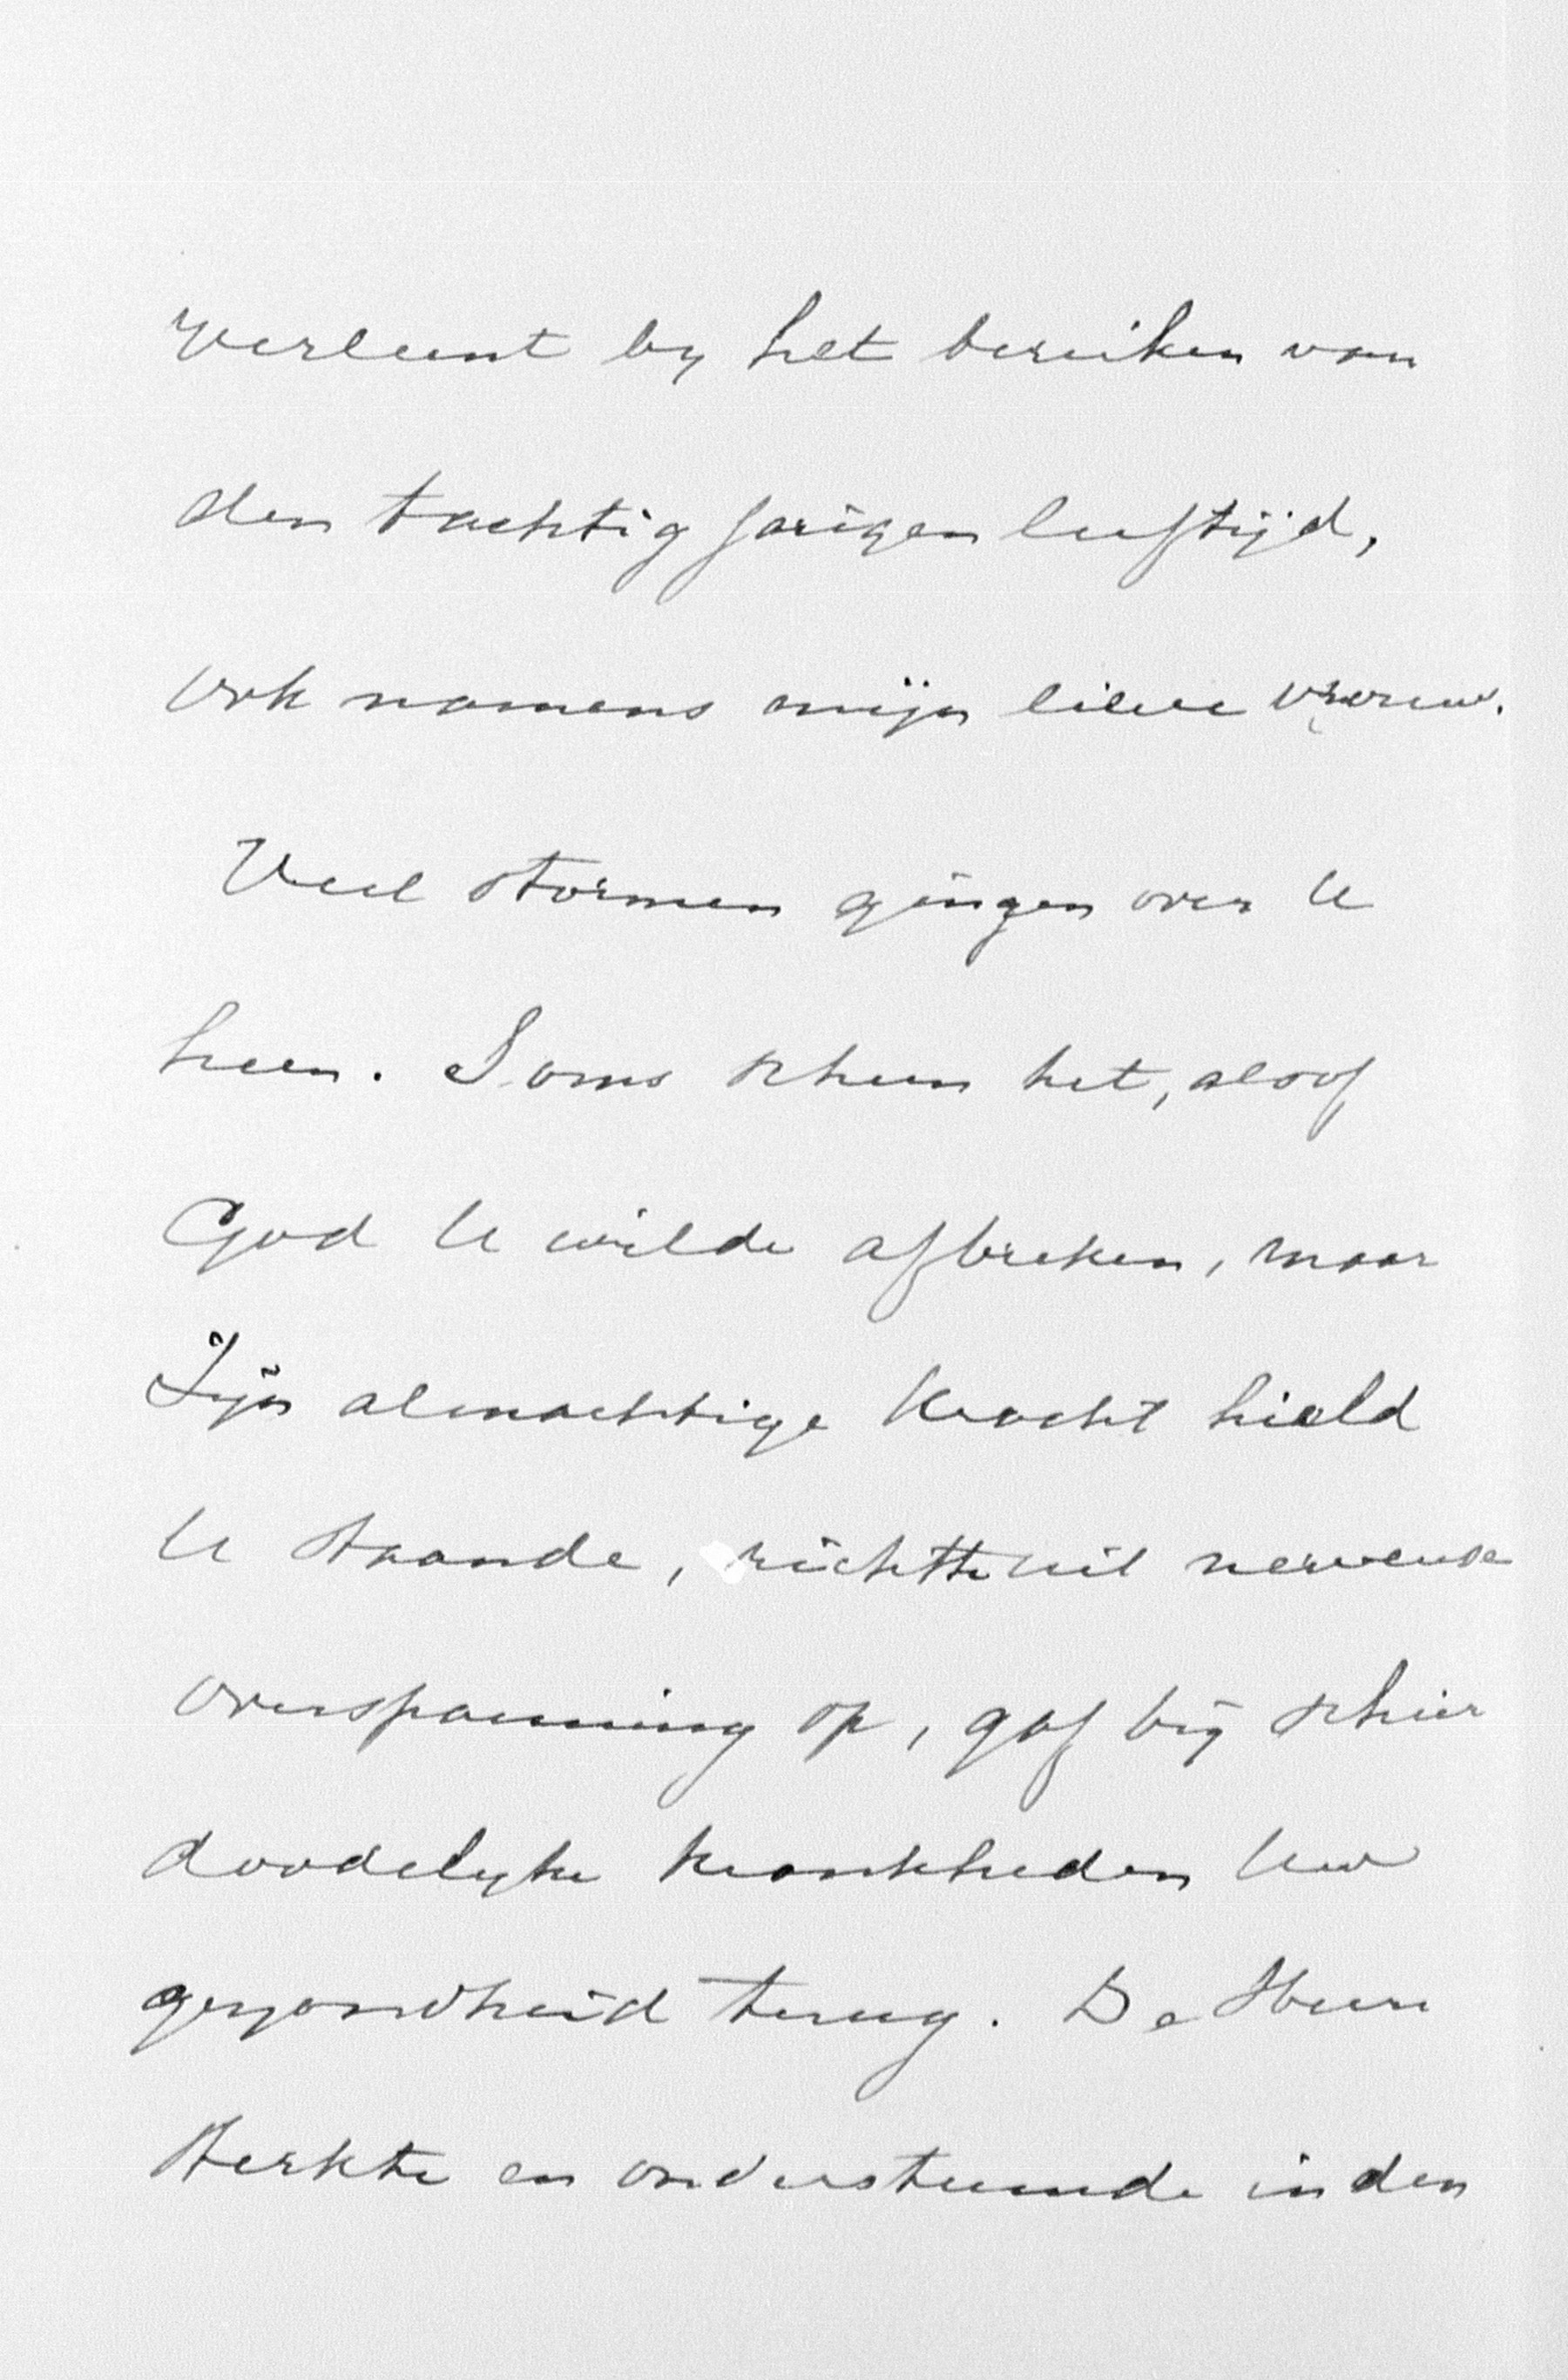 verleent by het bereiken van
den tachtig jarigen leeftijd,
ook namens mijn lieve vrouw.
Veel stormen gingen over U
heen. Soms scheen het, alsof
God U wilde afbreken, maar
Zijn almachtige kracht hield
U staande, richtte uit nerveuse
overspanning op, gaf bij schier
doodelyke krankheden Uw
gezondheid terug. De Heere
sterkte en ondersteunde in den